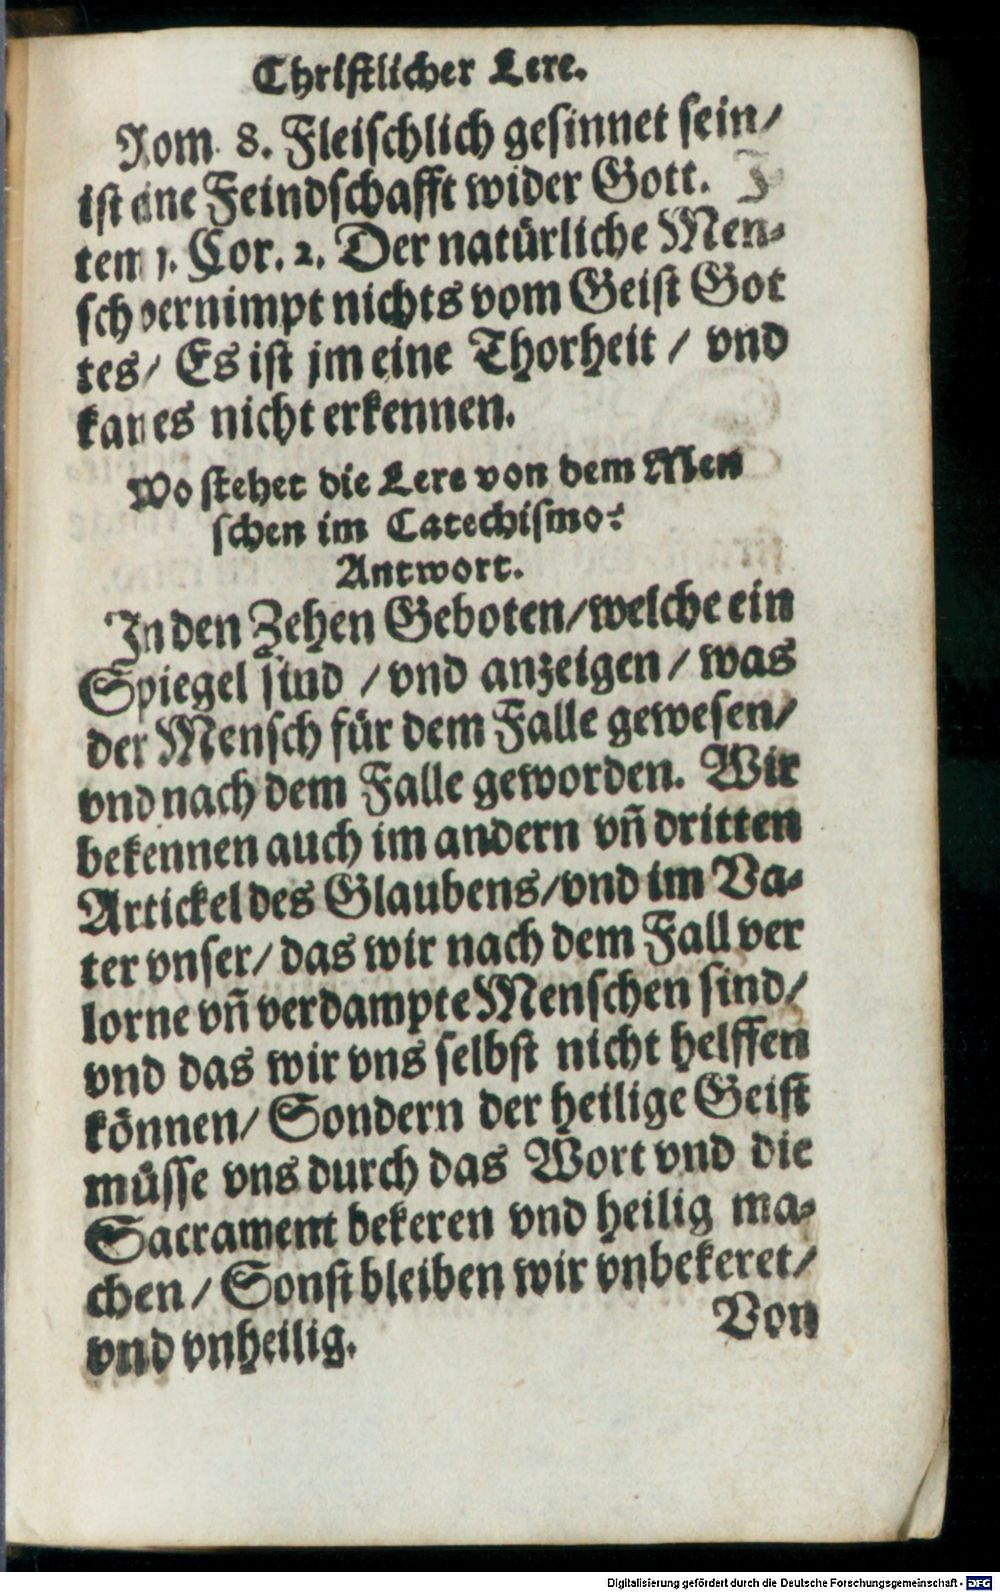 Christlicher Lere.
Rom. 8. Fleischlich gesinnet sein/
ist eine Feindschafft wider Gott. J
tem 1. Cor. 2. Der natürliche Men-
sch vernimpt nichts vom Geist Got
tes/ Es ist jm eine Thorheit / vnd
kan es nicht erkennen.
Wo stehet die Lere von dem Men
schen im Catechismo?
Antwort.
In den Zehen Geboten/welche ein
Spiegel sind /vnd anzeigen/ was
der Mensch für dem Falle gewesen/
vnd nach dem Falle geworden. Wir
bekennen auch im andern vñ dritten
Artickel des Glaubens/vnd im Va-
ter vnser/ das wir nach dem Fall ver
lorne vñ verdampte Menschen sind/
vnd das wir vns selbst nicht helffen
können/ Sondern der heilige Geist
müsse vns durch das Wort vnd die
Sacrament bekeren vnd heilig ma-
chen/ Sonst bleiben wir vnbekeret/
vnd vnheilig.
Von
Digitalisierung gefördert durch die Deutsche Forschungsgemeinschaft - DFG